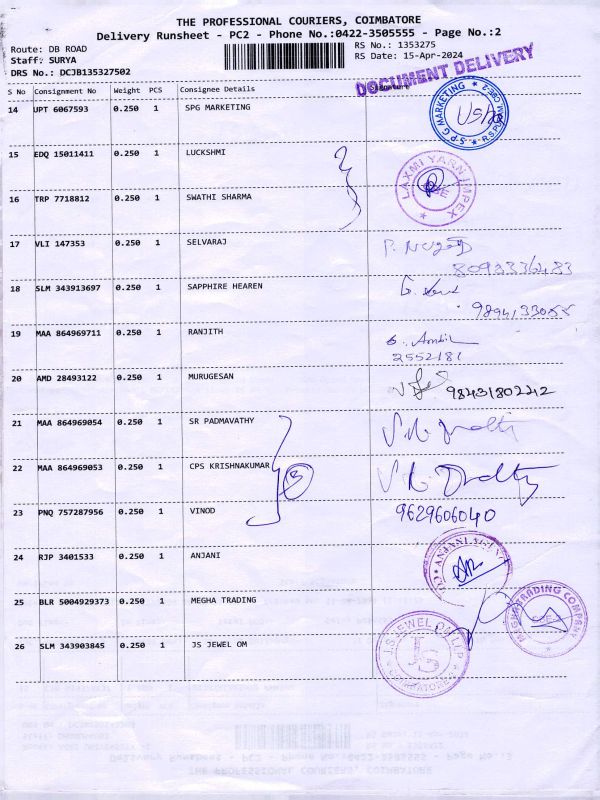 THE PROFESSIONAL COURIERS, COIMBATORE
Delivery Runsheet - PC2 - Phone No.:0422-3505555 - Page No.:2
Route: DB ROAD
Staff: SURYA
DRS No.: DCJB135327502
RS No.: 1353275
RS Date: 15-Apr-2024
DOCUMENT DELIVERY
S No Consignment No Weight PCS Consignee Details Signature
14 UPT 6067593 0.250 1 SPG MARKETING
S.P.G MARKETING
15 EDQ 15011411 0.250 1 LUCKSHMI
LAXMI YARN IMPEX
16 TRP 7718812 0.250 1 SWATHI SHARMA
17 VLI 147353 0.250 1 SELVARAJ
18 SLM 343913697 0.250 1 SAPPHIRE HEAREN
19 MAA 864969711 0.250 1 RANJITH
2552181
20 AMD 28493122 0.250 1 MURUGESAN
21 MAA 864969054 0.250 1 SR PADMAVATHY
22 MAA 864969053 0.250 1 CPS KRISHNAKUMAR
3
23 PNQ 757287956 0.250 1 VINOD
9629606040
24 RJP 3401533 0.250 1 ANJANI
25 BLR 5004929373 0.250 1 MEGHA TRADING
MEGHA TRADING COMPANY
26 SLM 343903845 0.250 1 JS JEWEL OM
J.S JEWEL OM LLP
JS
COIMBATORE